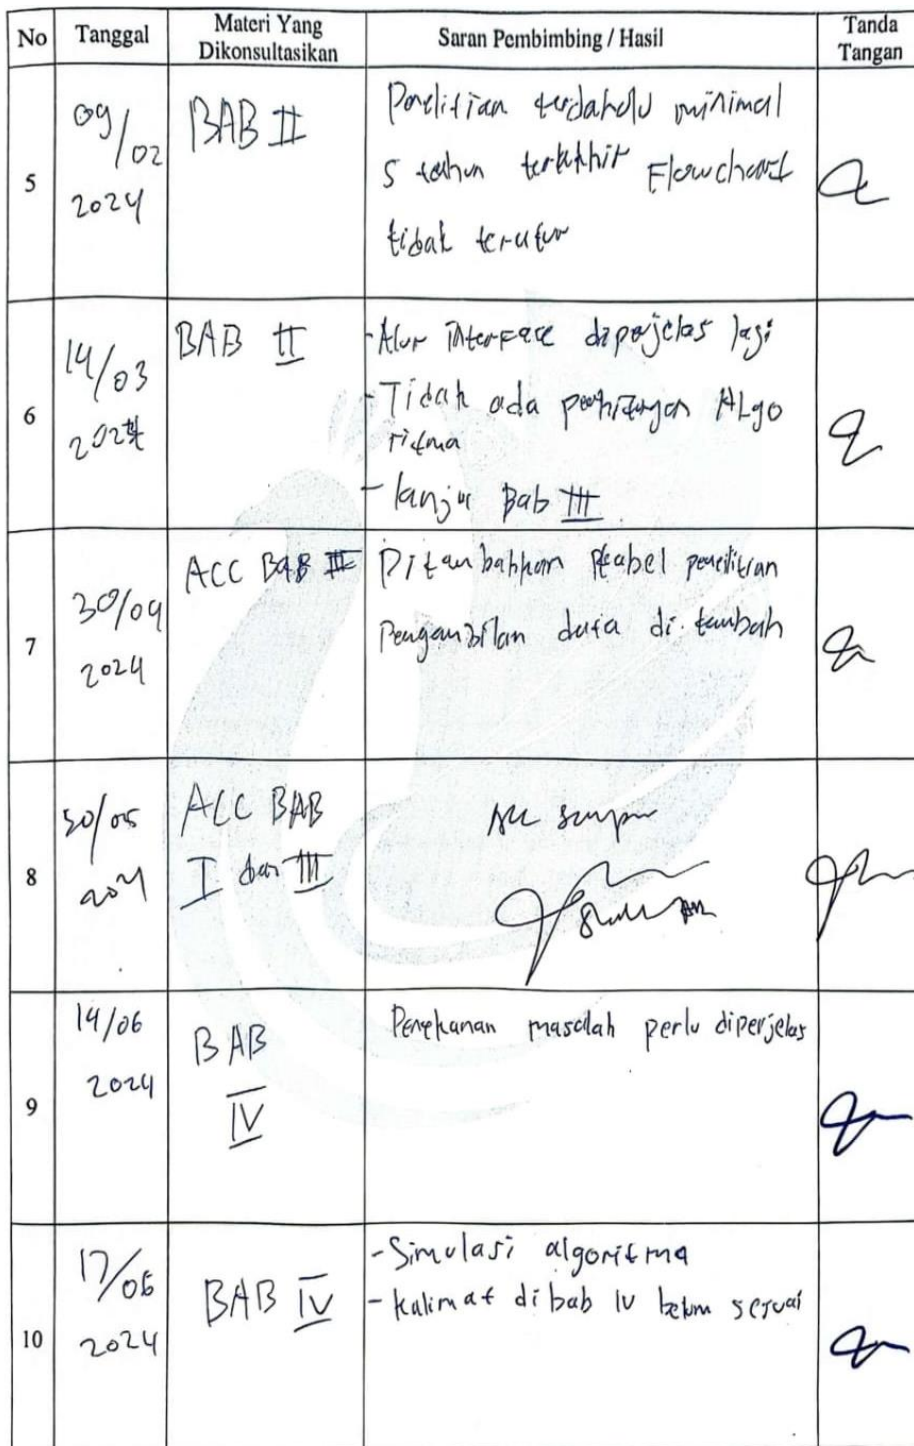 No Tanggal Materi Yang Dikonsultasikan Saran Pembimbing / Hasil Tanda Tangan
5
09/02
2024
BAB II
Penelitian terdahulu minimal
5 tahun terakhir Flowchart
tidak teratur
6
14/03
2024
BAB II
- Alur interface diperjelas lagi
- Tidak ada perhitungan ALgo
ritma
- lanjut Bab III
7
30/04
2024
ACC BAB II
Ditambahkan tabel penelitian
Pengambilan data di tambah
8
30/05
2024
ACC BAB
I dan III
ACC
9
14/06
2024
BAB
IV
Penekanan masalah perlu diperjelas
10
17/06
2024
BAB IV
- Simulasi algoritma
- Kalimat dibab IV belum sesuai